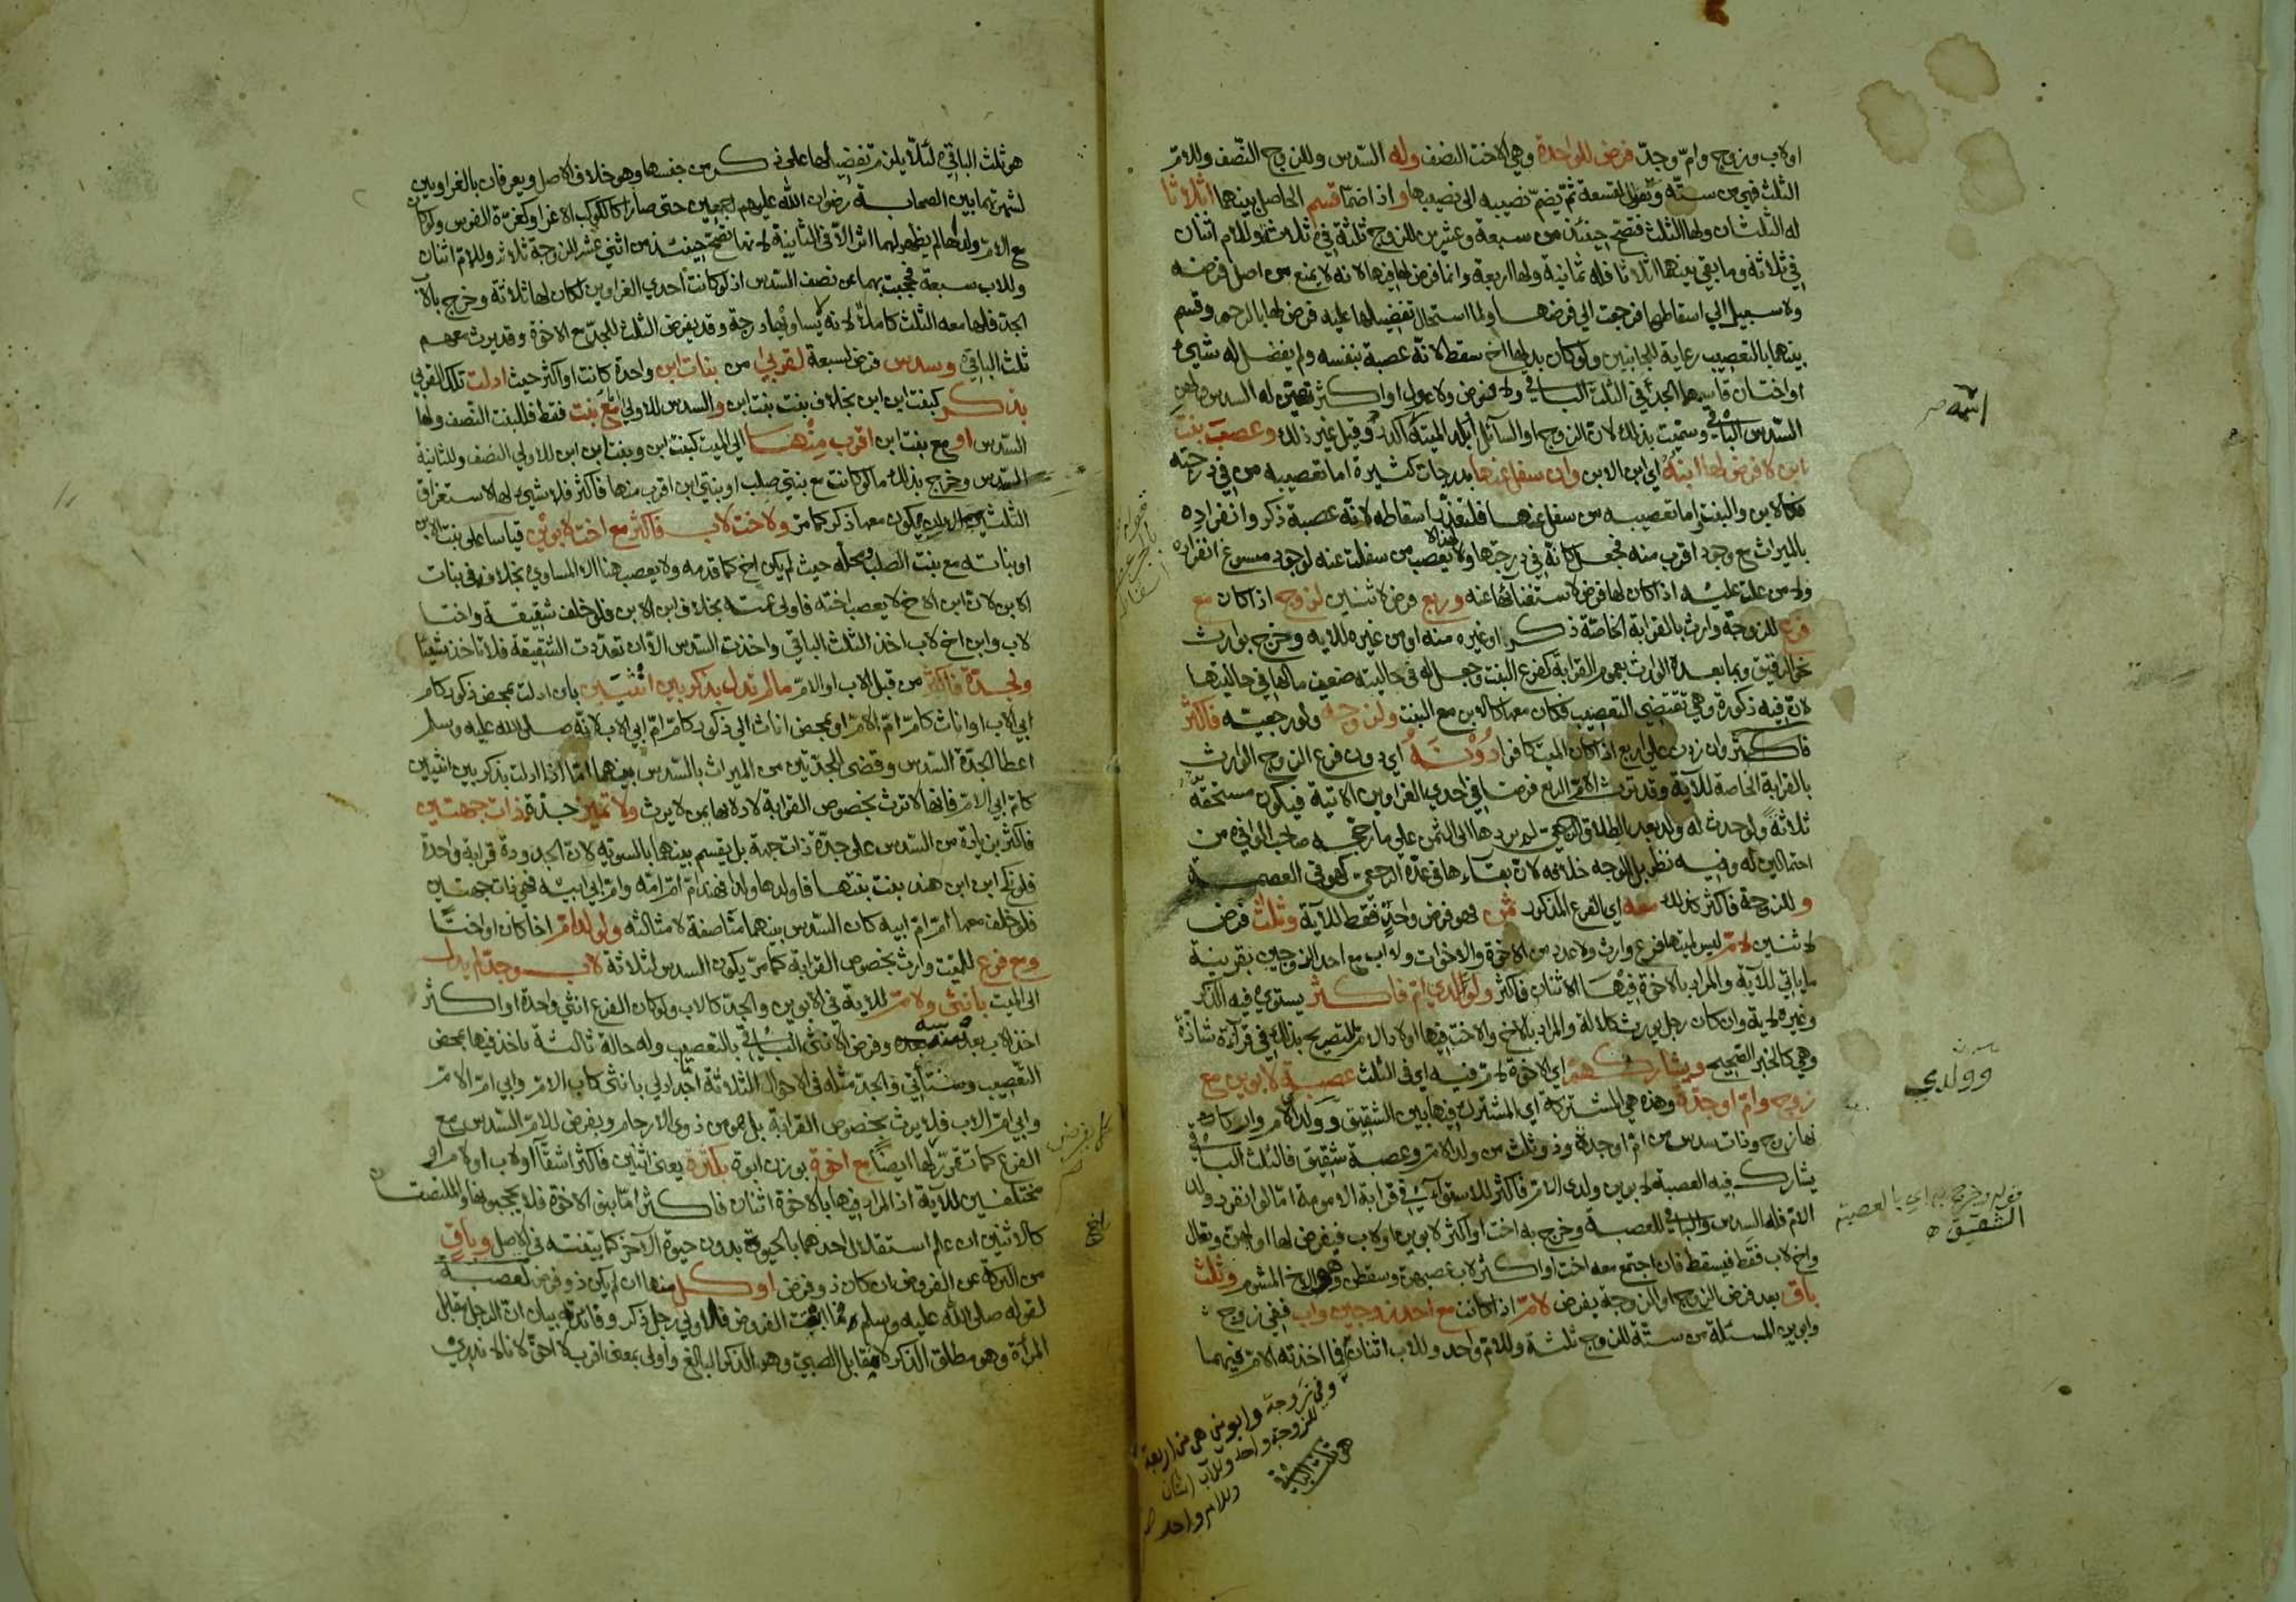 اولاب وزوج وام وجد فرض للواحدة وهي الاخت النصف وله السدس وللزوج النصف وللام
الثلث فهي من ستة وتعول لتسعة ثم يضم نصيبه الى نصيبها واذا ضما قسم الحاصل بينهما اثلاثا
له الثلثان ولها الثلث فتصح حينئذ من سبعة وعشرين للزوج ثلثة في ثلاثة وللام اثنان
في ثلاثة وما بقي بينهما اثلاثا فله ثمانية ولها اربعة وانما فرض لها فيها لانه لا يمنع من اصل فرضه
ولا سبيل الي اسقاطها فرجعت الي فرضها ولما استحال تفضيلها عليه فرض لها بالرحم وقسم
بينهما بالتعصيب رعاية للجانبين ولو كان بدلها اخ سقط لانه عصبة بنفسه ولم يفضل له شيء
او اختان قاسمهما الجد في الثلث الباقي ولا فرض ولا عول او اكثر تعين له السدس ولهن
السدس الباقي وسميت بذلك لان الزوج او السائل او بلد الميتة اكدر وقيل غير ذلك وعصب بنت
ابن لا فرض لها ابنه اي ابن الابن وان سفل عنها بدرجات كثيرة اما تعصيبه من في درجته
فكالابن والبنت واما تعصيبه من سفل عنها فلتعذر اسقاطه لانه عصبة ذكر وانفراده
بالميراث مع وجود اقرب منه فجعل كانه في درجتها ولا يعصب من سفلت عنه لوجود مسوغ انفراده
ولا من علت عليه اذا كان لها فرض لاستغنائها عنه وربع فرض لاثنين لزوج اذا كان مع
فرع للزوجة وارث بالقرابة الخاصة ذكر او غيره منه او من غيره للاية وخرج بوارث
نحو الرقيق وبما بعده الوارث بعموم القرابة كفرع البنت وجعل له في حالتيه ضعف ما لها في حالتيها
لان فيه ذكورة وهي تقتضي التعصيب فكان معها كالابن مع البنت ولزوجة ولو رجعية فاكثر
فاكثر وان زدن على اربع اذا كان الميت كافرا دونه اي دون فرع الزوج الوارث
بالقرابة الخاصة للآية وقد ترث الام الربع فرضا في احدى الغراوين الاتية فيكون مستحقه
ثلاثة ولو حدث له ولد بعد الطلاق الرجعي لم يردها الى الثمن على ما رجحه صاحب الوافي من
احتمالين له وفيه نظر بل الاوجه خلافه لان بقاءها في عدة الرجعي كهو في العصمة
وللزوجة فاكثر كذلك معه اي الفرع المذكور ثمن فهو فرض واحد فقط للآية وثلث فرض
لاثنين لام ليس لميتها فرع وارث ولا عدد من الاخوة والاخوات ولا اب مع احد الزوجين بقرينة
ما ياتي للآية والمراد بالاخوة فيها الاثنان فاكثر ولولدي ام فاكثر يستوي فيه الذكر
وغيره لاية وان كان رجل يورث كلالة والمراد بالاخ والاخت فيها اولاد الام للتصريح بذلك في قراءة شاذة
وهي كالخبر الصحيح ويشاركهم اي الاخوة لام فيه اي في الثلث عصبة لابوين مع
زوج وام او جدة وهذه هي المشتركة اي المشترك فيها بين الشقيق وولد الام واركانها
زوج وذات سدس من ام او جدة وذو ثلث من ولد الام وعصبة شقيق فالثلث الباقي
يشارك فيه العصبة لابوين ولدي الام فاكثر للاستواء في قرابة الامومة اما لو انفرد ولد
الام فله السدس والباقي للعصبة وخرج به اخت او اكثر لابوين او لاب فيفرض لها او لهن وتعال
واخ لاب فقط فيسقط فان اجتمع معه اخت او اكثر لاب عصبهن وسقطن وهو الاخ المشوم وثلث
باق بعد فرض الزوج او الزوجة يفرض لام اذا كانت مع احد زوجين واب ففي زوج
وابوين المسئلة من ستة للزوج ثلثة وللام واحد وللاب اثنان فما اخذته الام فيهما
اشبه صح
وولدي
قوله وخرج به اي بالعصبة
الشقيق
وفي زوجة وابوين هي من اربعة
للزوجة واحد وللاب اثنان
وللام واحد صح
هو ثلث الباقي
هو ثلث الباقي لئلا يلزم تفضيلها على ذكر من جنسها وهو خلاف الاصل ويعرفان بالغراوين
لشهرتهما بين الصحابة رضوان الله عليهم اجمعين حتى صارا كالكوكب الاغر او كغرة الفرس ولو كان
مع الام ولداها لم يظهر لهما اثر الا في الثانية لانها تصح حينئذ من اثني عشر للزوجة ثلاثة وللام اثنان
وللاب سبعة فحجبت بهما عن نصف السدس اذ لو كانت احدى الغراوين لكان لها ثلاثة وخرج بالاب
الجد فلها معه الثلث كاملا لانه لا يساويها درجة وقد يفرض الثلث للجد مع الاخوة وقد يرث معهم
ثلث الباقي وسدس فرض لسبعة لقربى من بنات ابن واحدة كانت او اكثر حيث ادلت تلك القربى
بذكر كبنت ابن ابن بخلاف بنت بنت ابن والسدس للاولى مع بنت فقط فللبنت النصف ولها
السدس او مع بنت ابن اقرب منها الى الميت كبنت ابن وبنت ابن ابن للاولى النصف وللثانية
السدس وخرج بذلك ما لو كانت مع بنتي صلب او بنتي ابن اقرب منها فاكثر فلا شيء لها لاستغراق
الثلثين الا ان يكون معها ذكر كما مر ولاخت لاب فاكثر مع اخت لابوين قياسا على بنت الابن
او بناته مع بنت الصلب ومحله حيث لم يكن اخ كما قدمه ولا يعصب هنا الا المساوي بخلافه في بنات
الابن لان ابن الاخ لا يعصب اخته فاولى عمته بخلاف ابن الابن فلو خلف شقيقة واختا
لاب وابن اخ لاب اخذ الثلث الباقي واخذت السدس الا ان تعددت الشقيقة فلا تاخذ شيئا
ولجدة فاكثر من قبل الاب او الام ما لم تدل بذكر بين انثيين بان ادلت بمحض ذكور كام
ابي الاب او اناث كام ام الام او بمحض اناث الى ذكور كام ام ابي الاب لانه صلى الله عليه وسلم
اعطا الجدة السدس وقضى للجدتين من الميراث بالسدس بينهما اما اذا ادلت بذكر بين انثيين
كام ابي الام فانها لا ترث بخصوص القرابة لادلائها بمن لا يرث ولا تميز جدة ذات جهتين
فاكثر بزيادة من السدس على جدة ذات جهة بل يقسم بينهما بالسوية لان الجدودة قرابة واحدة
فلو نكح ابن ابن هند بنت بنتها فاولدها ولدا فهند ام ام امه وام ابي ابيه فهي ذات جهتين
فلو خلف معها ام ام ابيه كان السدس بينهما مناصفة لا مثالثة ولولد ام اخا كان او اختا
ومع فرع للميت وارث بخصوص القرابة كما مر يكون السدس لثلاثة لاب وجد لم يدل
الى الميت بانثى ولام للاية في الابوين والجد كالاب ولو كان الفرع انثى واحدة او اكثر
اخذ الاب بعد سدسه وفرض الانثى الباقي بالتعصيب وله حالة ثالثة ياخذ فيها بمحض
التعصيب وستاتي والجد مثله في الاحوال الثلاثة اما جد ادلى بانثى كاب الام وابي ام الام
وابي ام الاب فلا يرث بخصوص القرابة بل هو من ذوي الارحام ويفرض للام السدس مع
الفرع كما تقرر لها ايضا مع اخوة بوزن ابوة بكثرة يعني اثنين فاكثر اشقآ او لاب او لام او
مختلفين للآية اذ المراد فيها بالاخوة اثنان فاكثر اما بنو الاخوة فلا يحجبونها والملتصقان
كالاثنين ان علم استقلال احدهما بالحيوة بدون حيوة الآخر كما بينته في الاصل وباق
من التركة عن الفروض ان كان ذو فرض او كل منها ان لم يكن ذو فرض لعصبة
لقوله صلى الله عليه وسلم فما ابقت الفروض فلاولى رجل ذكر وفائدته بيان ان الرجل مقابل
المرأة وهو مطلق الذكر لا مقابل الصبي وهو الذكر البالغ واولى بمعنى اقرب لا احق لانا لا ندري